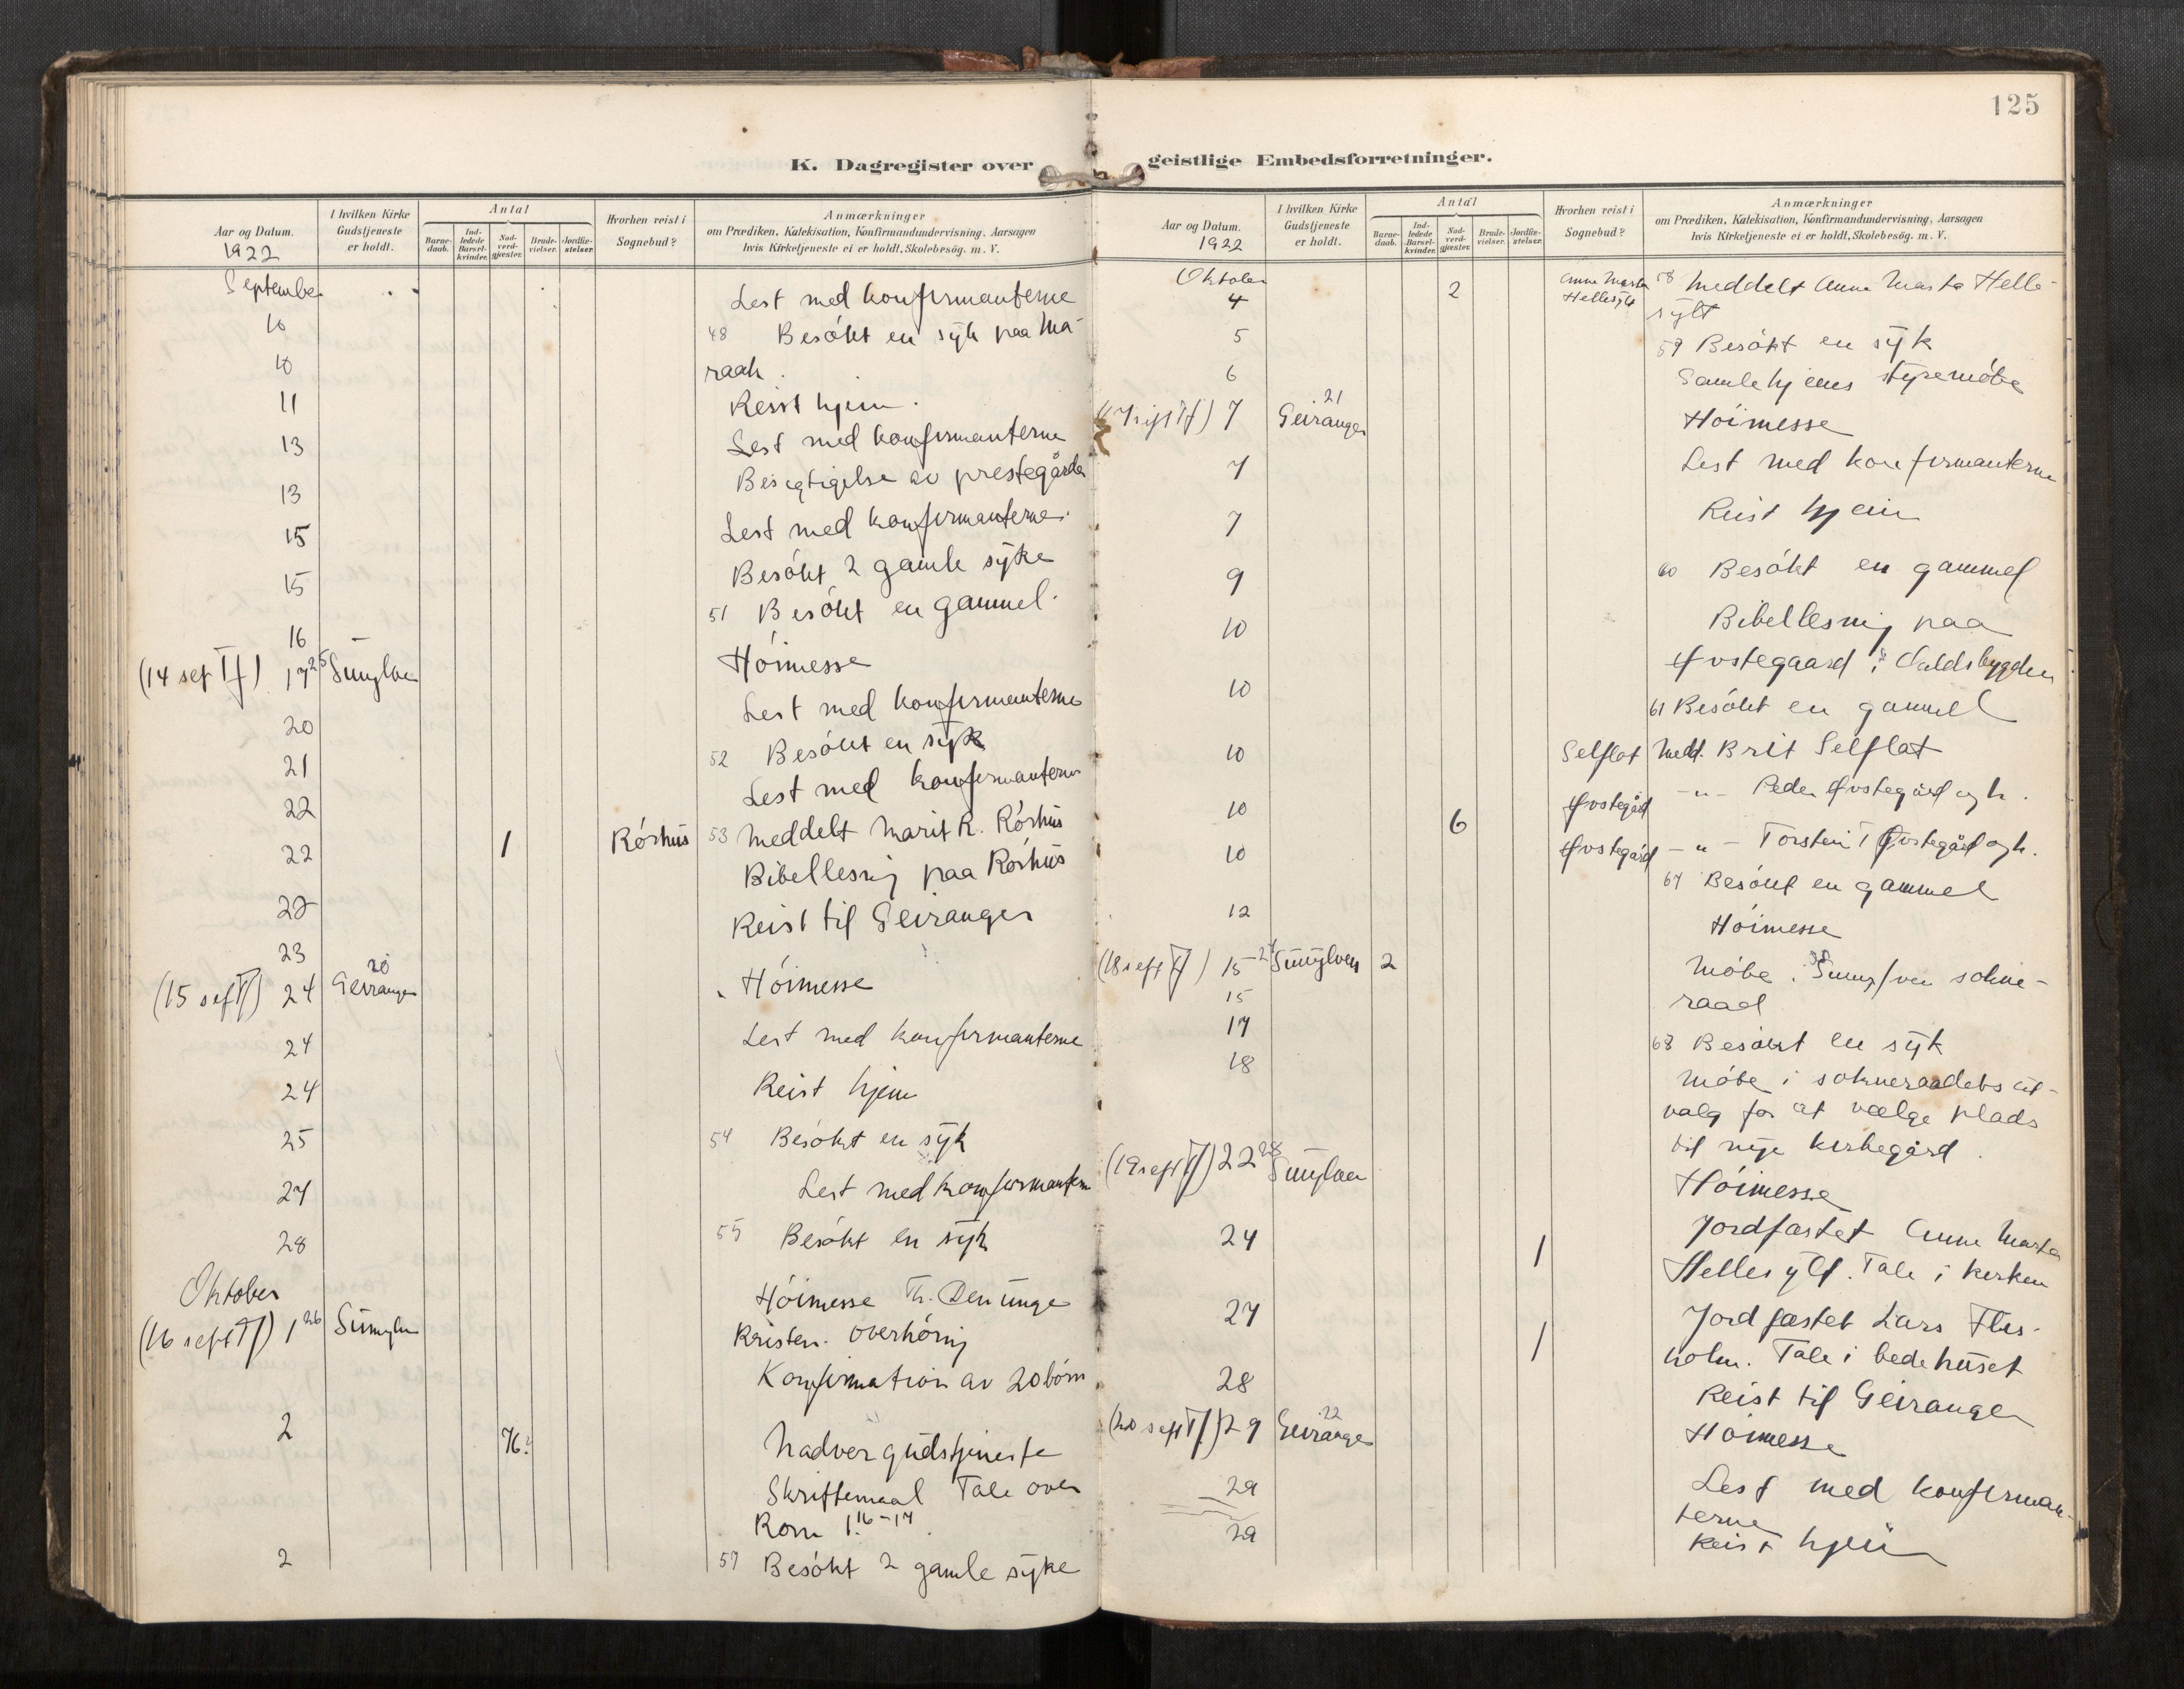 125
K. Dagregister over
Aar og Datum.
1922
I hvilken Kirke
Gudstjeneste
er holdt.
Antal
Barne-
daab.
Ind-
ledede
Barsel-
kvinder.
Nad-
verd-
gjester.
Brude-
vielser.
Jordfæ-
stelser.
Hvorhen reist i
Sognebud?
Anmærkninger
om Prædiken, Katekisation, Konfirmandundervisning, Aarsagen
hvis Kirketjeneste ei er holdt, Skolebesög. m. V.
September
Lest med konfirmanterne
10
48 Besökt en syk paa Ma-
raak.
10
Reist hjem.
11
Lest med konfirmanterne
13
Besigtigelse av prestegården
13
Lest med konfirmanterne.
15
Besökt 2 gamle syke
15
51 Besökt en gammel.
16
Höimesse
(14 sef Tf) 17 25 Sunylven
Lest med konfirmanterne
20
52 Besökt en syk
21
Lest med konfirmanterne
22
1 Rörhus 53 Meddelt Marit R. Rörhus
22
Bibellesnig paa Rörhus
22
Reist til Geiranger
23
20
(15 sef Tf) 24 Geiranger
Höimesse
24
Lest med konfirmanterne
24
Reist hjem
25
54 Besökt en syk
27
Lest med konfirmantern
28
55 Besökt en syk
Oktober
(16 seft Tf) 1 26 Sunylven
Höimesse Th. Den unge
Kristen. Overhörig
Konfirmation av 20 börn
2
76
Nadvergudstjeneste
Skriftemaal Tale over
Rom 1.16-17.
2
57 Besökt 2 gamle syke
geistlige Embedsforretninger.
Aar og Datum.
1922
I hvilken Kirke
Gudstjeneste
er holdt.
Antal
Barne-
daab.
Ind-
ledede
Barsel-
kvinder.
Nad-
verd-
gjester.
Brude-
vielser.
Jordfæ-
stelser.
Hvorhen reist i
Sognebud?
Anmærkninger
om Prædiken, Katekisation, Konfirmandundervisning, Aarsagen
hvis Kirketjeneste ei er holdt, Skolebesög. m. V.
Oktober
4 2 Anne Marta
Hellesylt
58 Meddelt Anne Marta Helle-
sylt
5
59 Besökt en syk
6
Samlehjems styremöte
21
7 Geiranger
Höimesse
7
Lest med konfirmanterne
7
Reist hjem
9
60 Besökt en gammel
10
Bibellesnig paa
Øvstegaard i
10
61 Besökt en gammel
10
Selflot Medd. Brit Selflat
10 6 Øvstegård
-"- Peder Øvstegård og h.
10 Øvstegård
-"- Torstein T Øvstegård og h.
12
67 Besökt en gammel
(18 seft Tf) 15 27 Sunylven 2
Höimesse
15
Möte i Sunylven sokne-
raad
17
68 Besökt en syk
18
Möte i sokneraadets ut-
valg for at vælge plads
til nye kirkegård.
(19 seft Tf) 22 28 Sunylven
Höimesse
24 1
Jordfæstet Anne Marta
Hellesylt. Tale i kirken
27 1
Jordfæstet Lars Flus-
holm. Tale i bedehuset
28
Reist til Geiranger
22
(20 seft Tf) 29 Geiranger
Höimesse
29
Lest med konfirman-
terne
29
Reist hjem